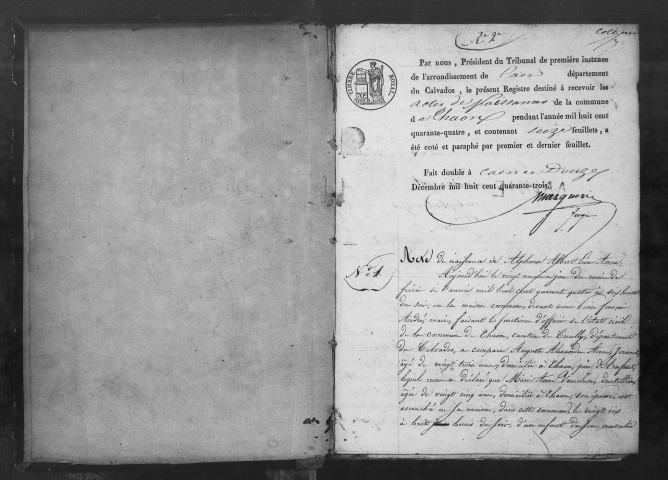 N° 2
TIMBRE ROYAL
Par nous, Président du Tribunal de première instance
de l'arrondissement de Caen département
du Calvados, le présent Registre destiné à recevoir les
actes de Naissances de la commune
de Thaon pendant l'année mil huit cent
quarante-quatre, et contenant seize feuillets, a
été coté et paraphé par premier et dernier feuillet.
Fait double à Caen ce Douze
Décembre mil huit cent quarante-trois.
Juge
N° 1
Acte de naissance de Alphonse Albert
Aujourd'hui le vingt jour du mois de
février de l'année mil huit cent quarante quatre à six heures
du soir, en la maison commune, devant nous françois
André maire, faisant les fonctions d'officier de l'état civil
de la commune de Thaon, canton de Creully, département
du Calvados, a comparu Auguste Alexandre
âgé de vingt trois ans, domicilié à Thaon, père de l'enfant,
lequel nous a déclaré que Marie
âgée de vingt cinq ans, domiciliée à Thaon, son épouse, est
accouchée en sa maison, dans cette commune, le vingt six
à huit heures du soir, d'un enfant du sexe masculin